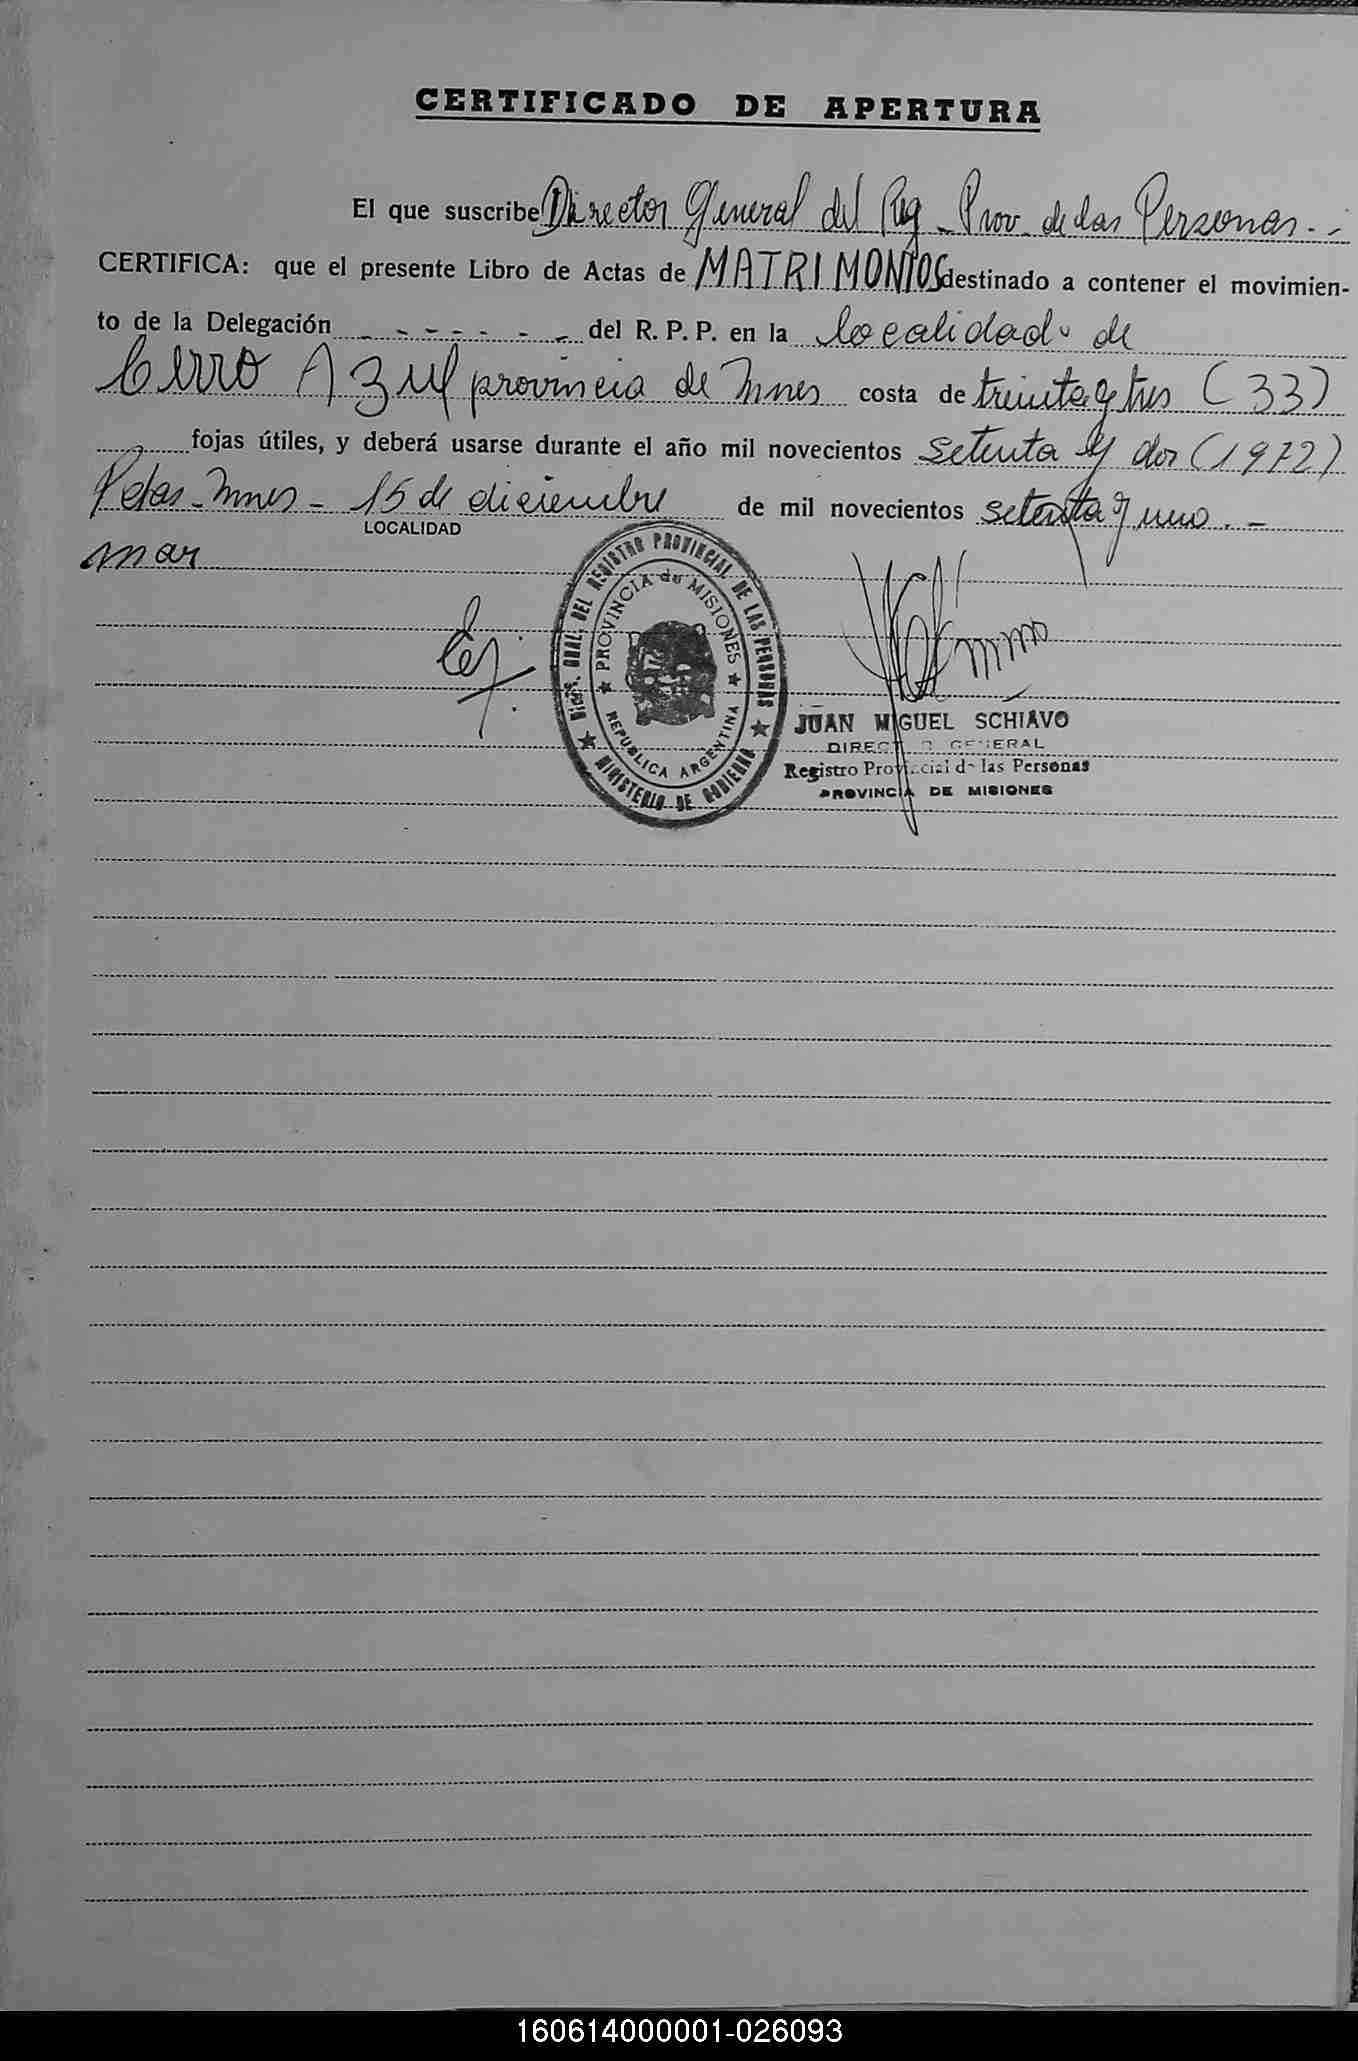 CERTIFICADO DE APERTURA
El que suscribe Director General del Reg. Prov. de las Personas.-
CERTIFICA: que el presente Libro de Actas de MATRIMONIOS destinado a contener el movimien-
to de la Delegación - - - - - - del R. P. P. en la localidad de
Cerro Azul provincia de Mnes costa de treinta y tres (33)
fojas útiles, y deberá usarse durante el año mil novecientos setenta y dos (1972)
Pdas-Mnes- 15 de diciembre de mil novecientos setenta y uno.-
LOCALIDAD
mar
DIRE. GRAL. DEL REGISTRO PROVINCIAL DE LAS PERSONAS
PROVINCIA de MISIONES
REPUBLICA ARGENTINA
MINISTERIO DE GOBIERNO
JUAN MIGUEL SCHIAVO
DIRECTOR GENERAL
Registro Provincial de las Personas
PROVINCIA DE MISIONES
160614000001-026093